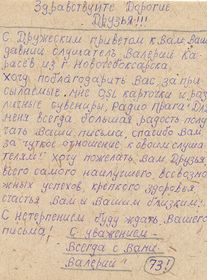 Здравствуйте Дорогие
Друзья!!!
С Дружеским приветом к Вам Ваш
давний слушатель, Валерий Ка-
расёв, из г. Новочебоксарска.
Хочу поблагодарить Вас, за при-
сылаемые мне QSL карточки и раз-
личные сувениры, Радио Прага! Для
меня всегда большая радость полу-
чать Ваши письма, спасибо Вам
за чуткое отношение к своим слуша-
телям!! Хочу пожелать Вам Друзья
всего самого наилучшего, всевозмо-
жных успехов, крепкого здоровья,
счастья Вам и Вашим близким!.
С нетерпением буду ждать Вашего
письма!
С уважением-
Всегда с Вами
Валерий
73!